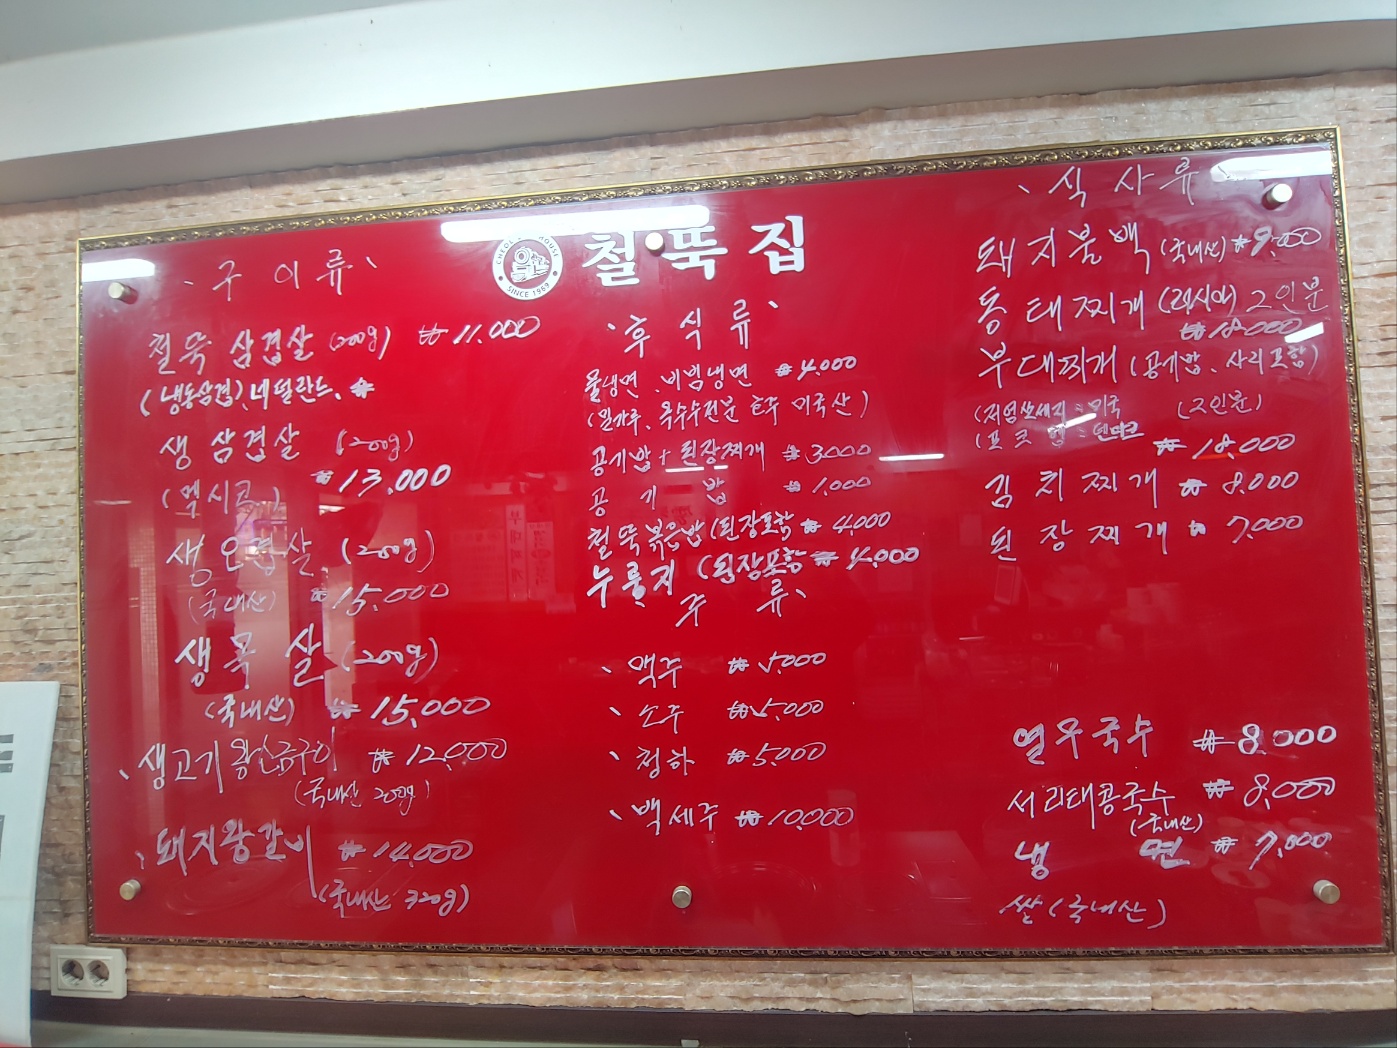 철뚝집
SINCE 1969
、구 이 류、
철뚝 삼겹살 (200g) ₩11.000
(냉동삼겹)、네덜란드、
생 삼겹살 (200g)
(멕시코) ₩13,000
생오겹살 (200g)
(국내산) ₩15.000
생목살 (200g)
(국내산) ₩15,000
、생고기왕소금구이 ₩12,000
(국내산 200g)
、돼지왕갈비 ₩14,000
(국내산 320g)
、후 식 류、
물냉면 、비빔냉면 ₩4.000
(밀가루、옥수수전분 호주 미국산)
공기밥+된장찌개 ₩3000
공 기 밥 ₩1,000
철뚝볶음밥(된장포함 ₩4.000
누룽지 (된장포함 ₩4.000
주 류、
、맥주 ₩5.000
、소주 ₩5,000
、청하 ₩5,000
、백세주 ₩10,000
、식 사 류、
돼지불백 (국내산) ₩9.000
동태찌개 (러시아) 2인분
₩18.000
부대찌개 (공기밥、사리포함)
: 미국 (2인분)
: 덴마크 ₩18,000
김 치 찌 개 ₩8.000
된 장 찌 개 ₩7,000
열무국수 ₩8.000
서리태콩국수 ₩8,000
(국내산)
냉 면 ₩7,000
쌀 (국내산)